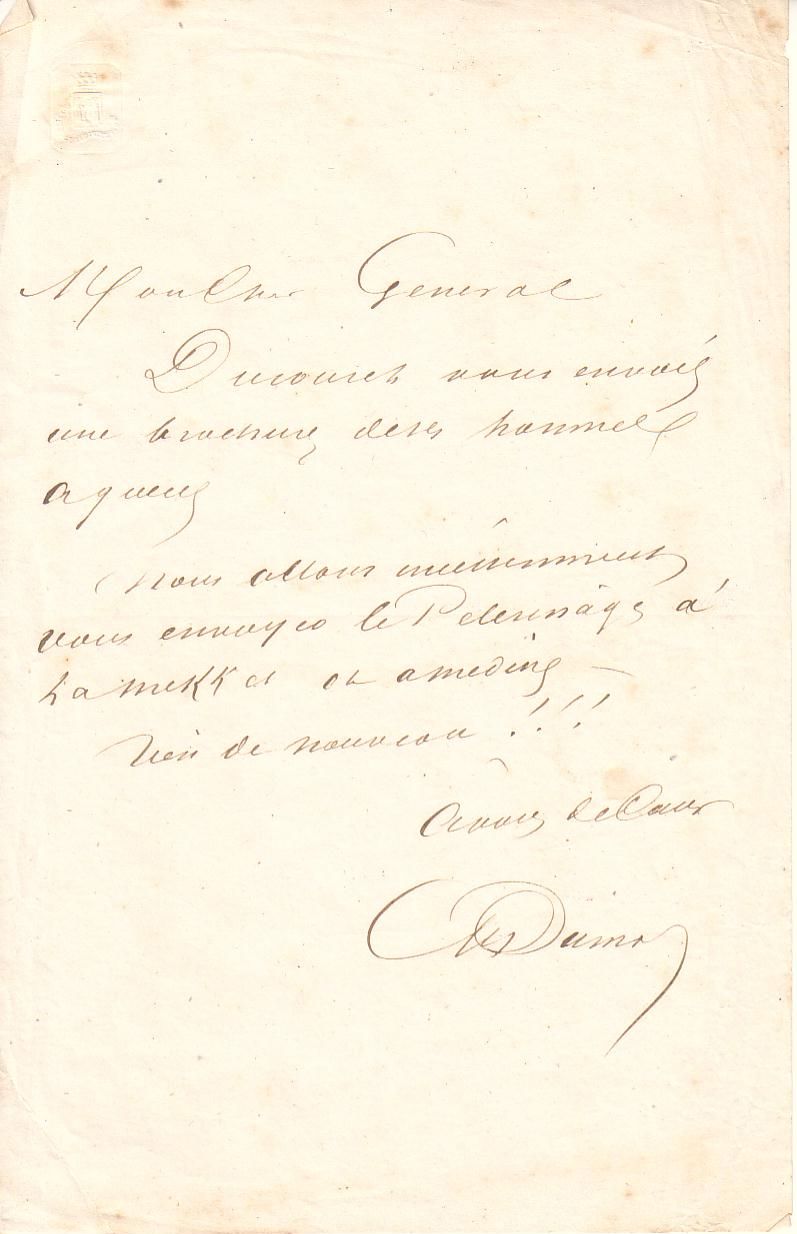 Mon Cher General
Ducouret vous envoie
une brochure de ses hommes
a queues
Nous allons incessamment
vous envoyer le Pelerinage à
La Mekke et a medine —
Rien de nouveau !!!
A vous de Cœur
Alex Dumas